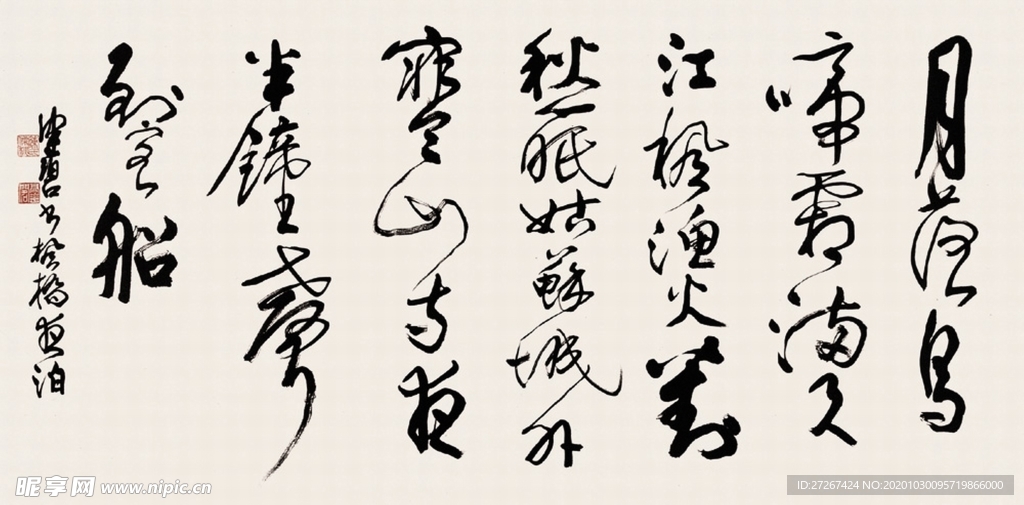 月落烏
啼霜滿天
江楓漁火對
愁眠姑蘇城外
寒山寺夜
半鐘聲
到客船
書楓橋夜泊
昵享网 www.nipic.cn
ID:27267424 NO:20201030095719866000